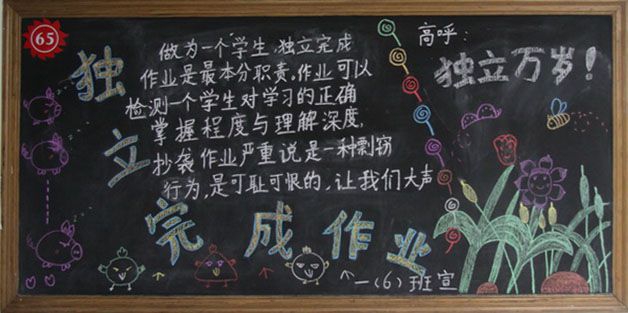 65
独立
完成作业
做为一个学生,独立完成
作业是最本分职责,作业可以
检测一个学生对学习的正确
掌握程度与理解深度,
抄袭作业严重说是一种剽窃
行为,是可耻可恨的,让我们大声
高呼:
独立万岁!
一(6)班宣